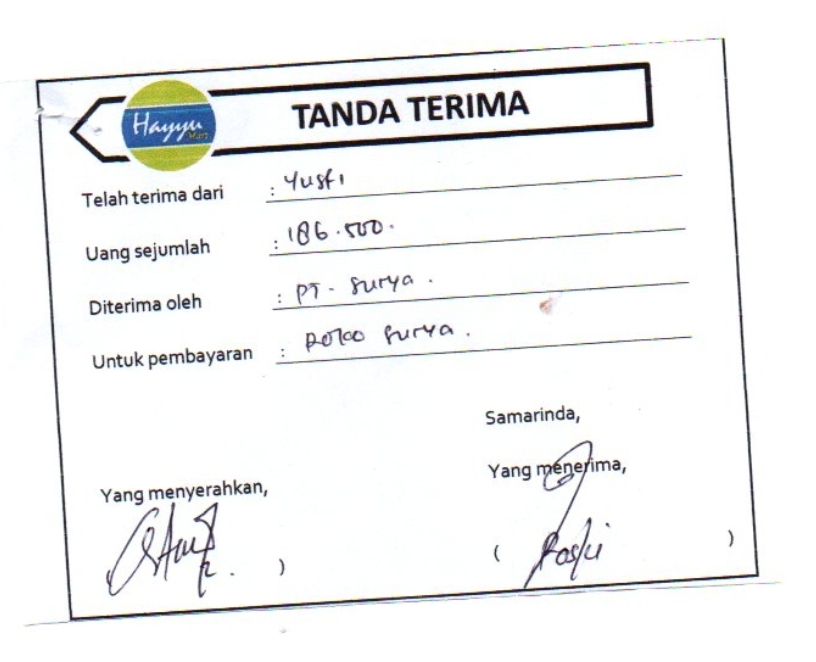 Hayyu
Mart
TANDA TERIMA
Telah terima dari : Yusfi
Uang sejumlah : 186.500.
Diterima oleh : PT. Surya.
Untuk pembayaran : Surya.
Samarinda,
Yang menyerahkan, Yang menerima,
) ( )